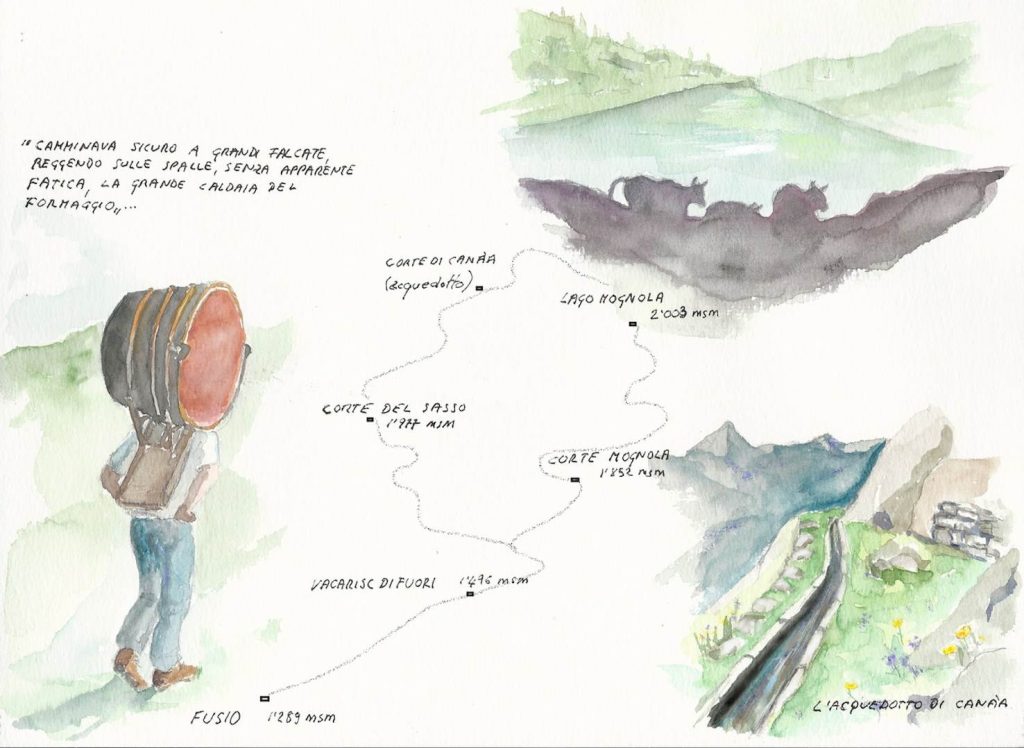 "CAMMINAVA SICURO A GRANDI FALCATE,
REGGENDO SULLE SPALLE, SENZA APPARENTE
FATICA, LA GRANDE CALDAIA DEL
FORMAGGIO"...
CORTE DI CANÀA
(acquedotto)
LAGO MOGNOLA
2'003 msm
CORTE DEL SASSO
1'977 msm
CORTE MOGNOLA
1'852 msm
VACARISC DI FUORI 1'496 msm
FUSIO 1'289 msm
L'ACQUEDOTTO DI CANÀA